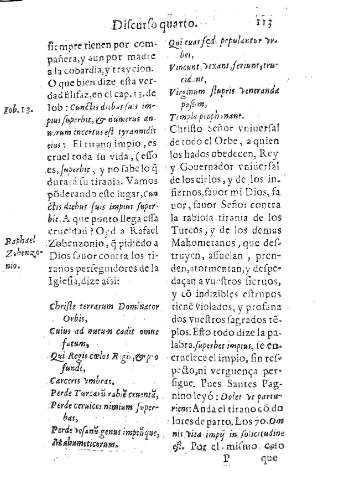 Discurso quarto. 113
siempre tienen por com-
pañera, y aun por madre
a la cobardia, y traycion.
O que bien dize esta ver-
dad Elifaz, en el cap. 13. de
Iob. 13.
Iob: Cunctis diebus suis im-
pius superbit, & numerus an-
norum incertus est tyrannidis
eius: El tirano impio, es
cruel toda su vida, (esso
es, superbit, y no sabe lo q̃
durarà su tirania. Vamos
põderando este lugar, Cun
ctis diebus suis impius super-
bit. A que punto llega essa
crueldad? Oyd a Rafael
Raphael
Zobenzo-
nio.
Zobenzonio, q̃ pidiẽdo a
Dios fauor contra los ti-
ranos perseguidores de la
Iglesia, dize assi:
Christe terrarum Dominator
Orbis,
Cuius ad nutum cadit omne
fatum,
Qui Regis cœlos Regis, &
fundi,
Carceris vmbras,
Perde Turcarũ rabiẽ cruentã,
Perde ceruices nimium super-
bas,
Perde vesanũ genus impiũque,
Mahumeticorum.
Qui tuas sed populantur vr-
bes,
Vincunt, vexant, feriunt, tru-
cidant,
Virginum stupris veneranda
passim,
Templa prophanant.
Christo Señor vniuersal
de todo el Orbe, a quien
los hados obedecen, Rey
y Gouernador vniuersal
de los cielos, y de los in-
fiernos, fauor mi Dios, fa-
uor, fauor Señor contra
la rabiosa tirania de los
Turcos, y de los demas
Mahometanos, que des-
truyen, assuelan, pren-
den, atormentan, y despe-
daçan a vuestros sieruos,
y cõ indizibles estrupos
tiene violados, y profana
dos vuestros sagrados tẽ-
plos. Esto todo dize la pa-
labra, superbet impius, se en-
cruelece el impio, sin res-
peto, ni verguença per-
sigue. Pues Santes Pag-
nino leyó: Dolet de partu-
riens: Anda el tirano cõ do
lores de parto. Los 70. Om-
nis vita impij in solicitudine
est. Por el mismo caso
P que